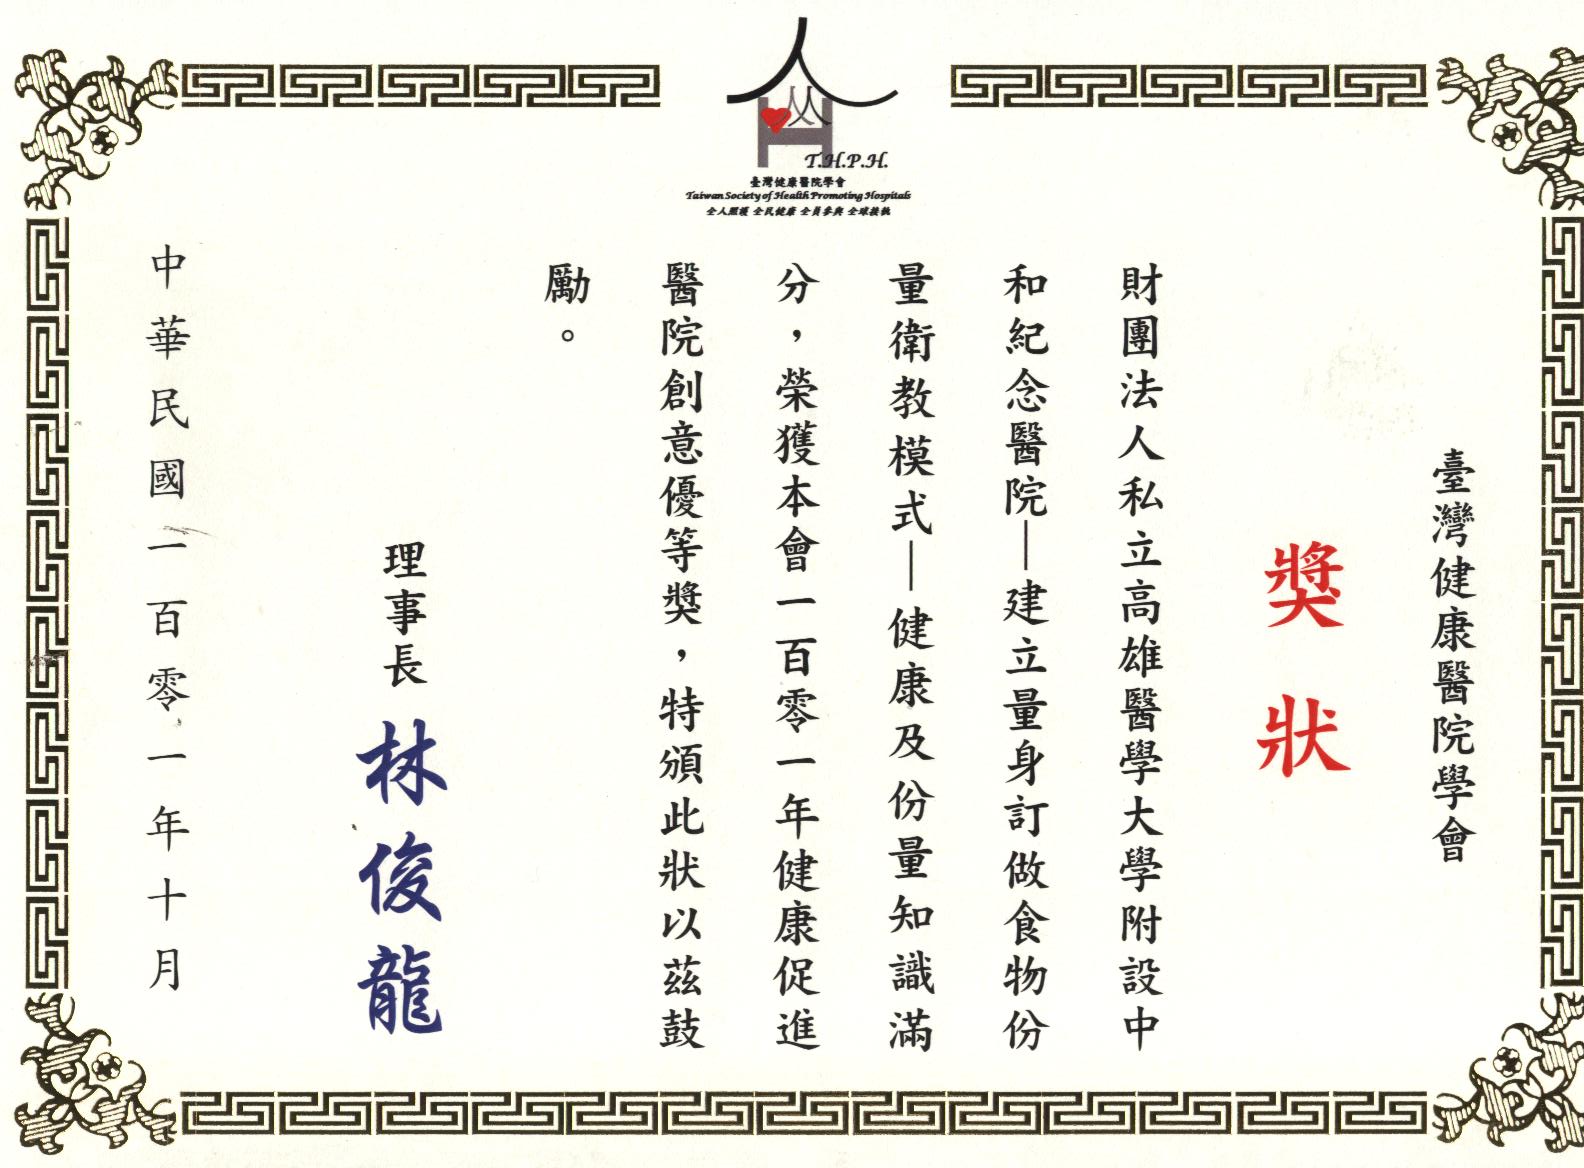 T.H.P.H.
臺灣健康醫院學會
Taiwan Society of Health Promoting Hospitals
全人照護 全民健康 全員參與 全球接軌
臺灣健康醫院學會
獎狀
財團法人私立高雄醫學大學附設中
和紀念醫院—建立量身訂做食物份
量衛教模式—健康及份量知識滿
分,榮獲本會一百零一年健康促進
醫院創意優等獎,特頒此狀以茲鼓
勵。
理事長 林俊龍
中華民國一百零一年十月